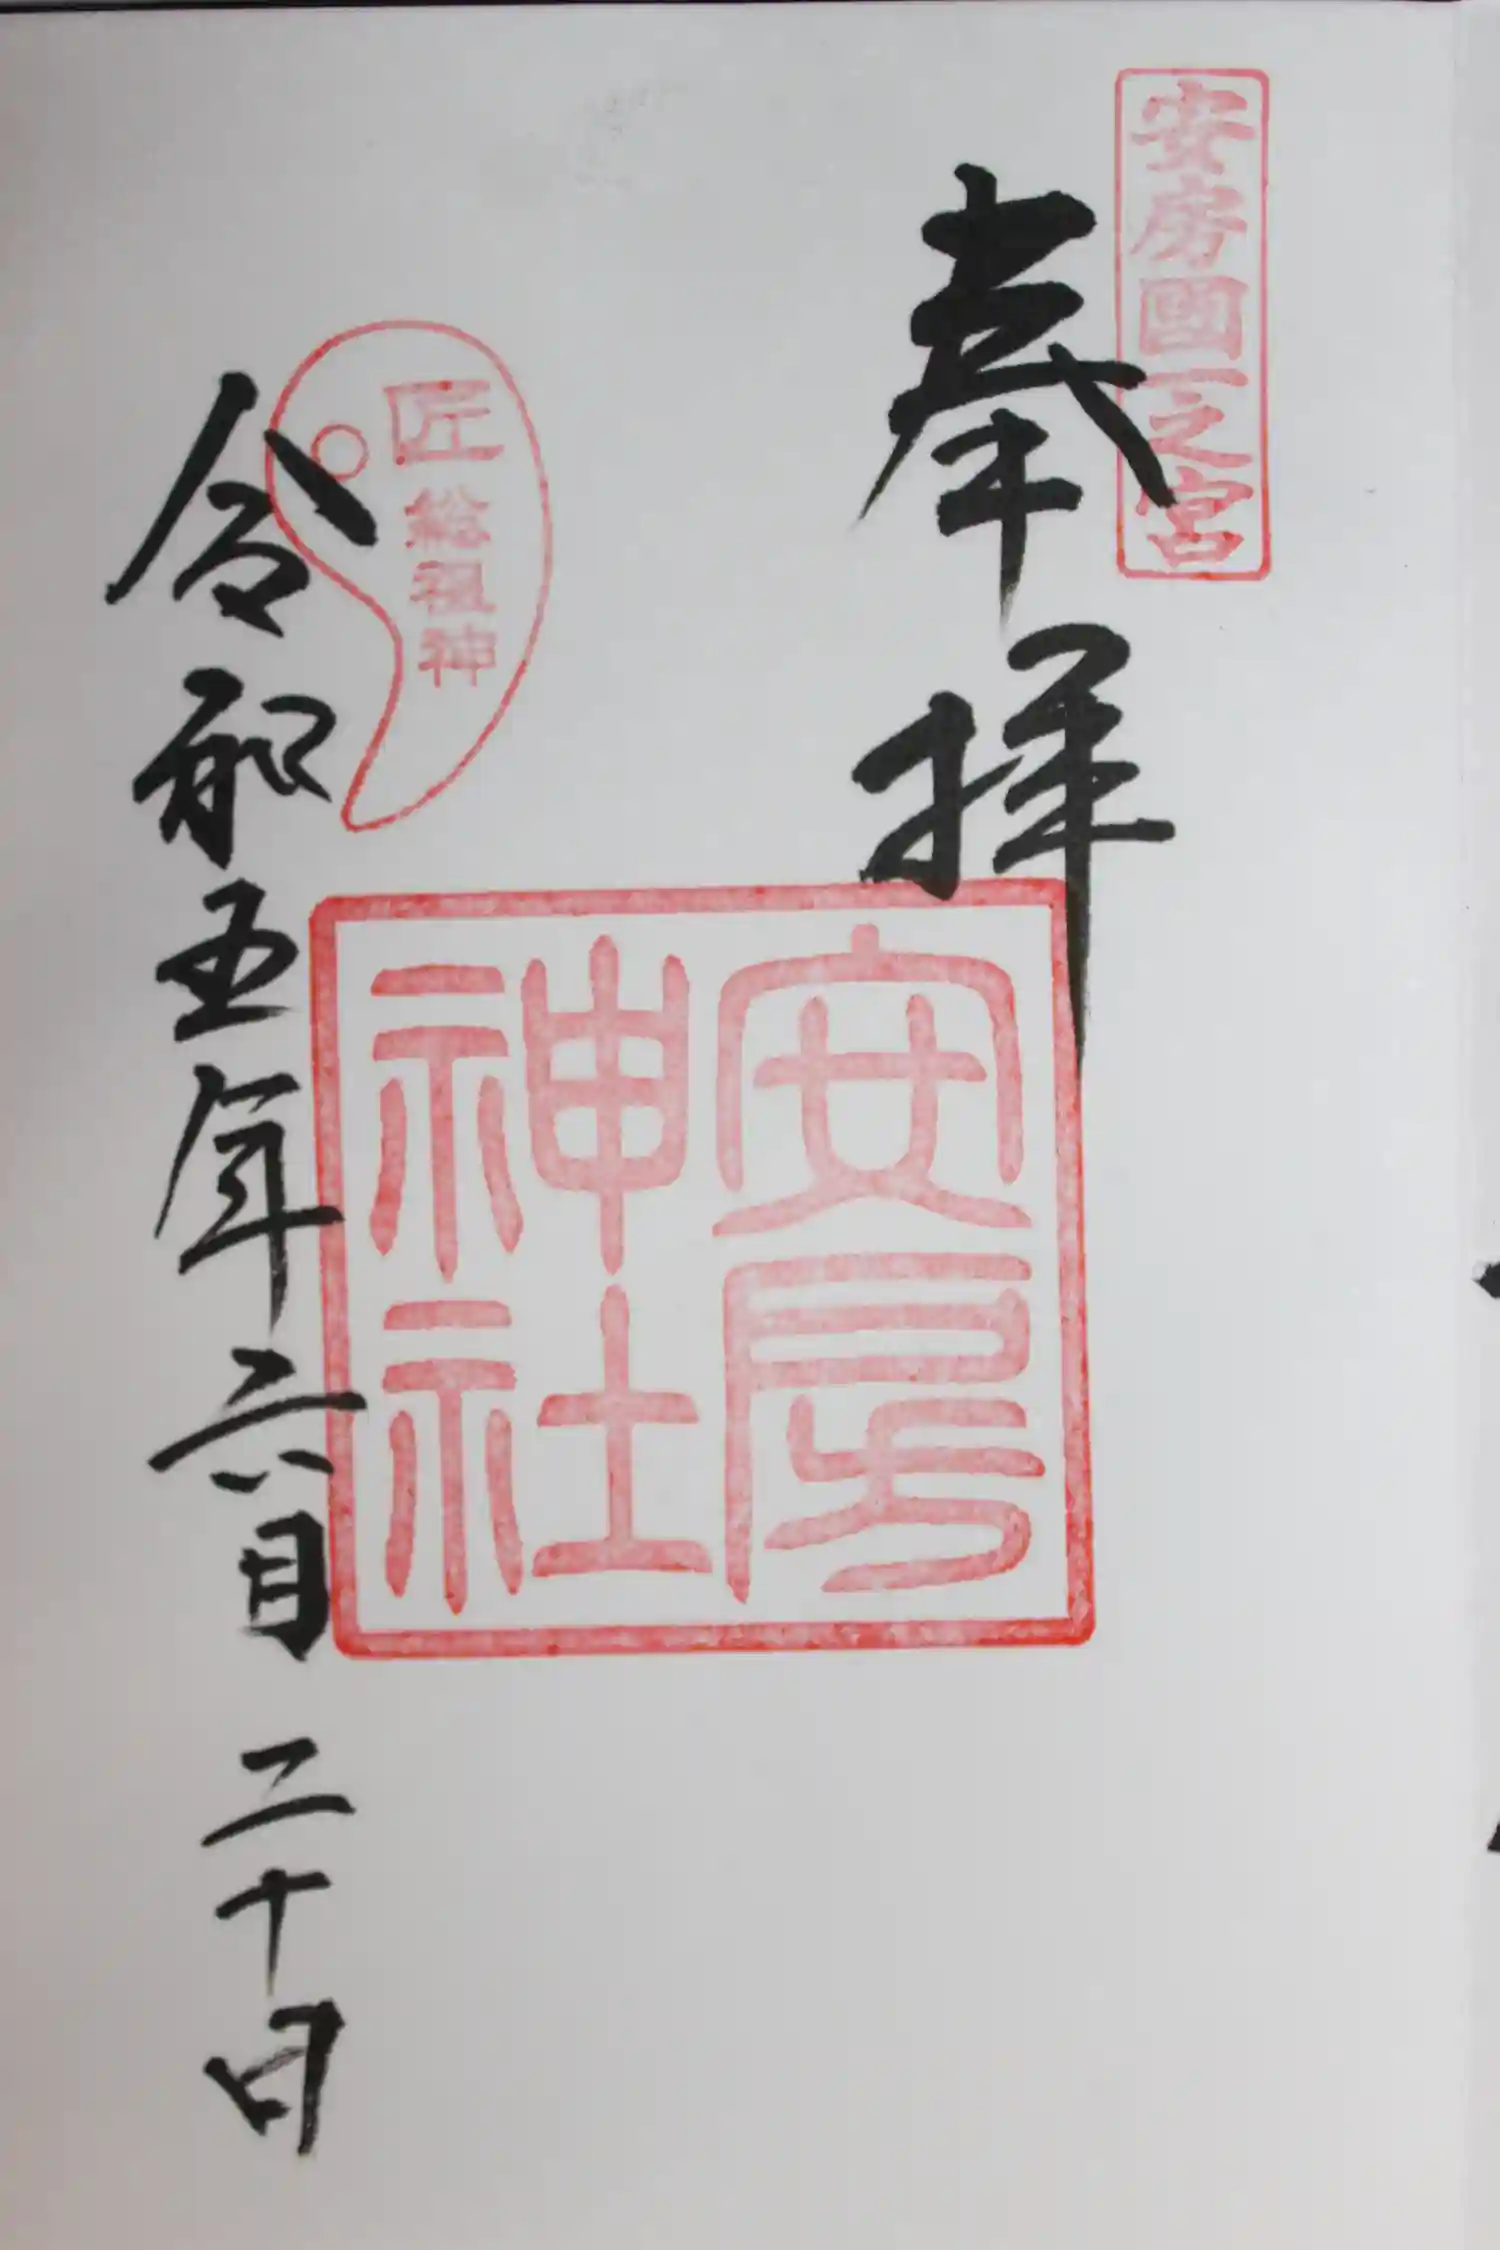 安房國一之宮
奉拝
安房
神社
匠総祖神
令和五年六月二十日